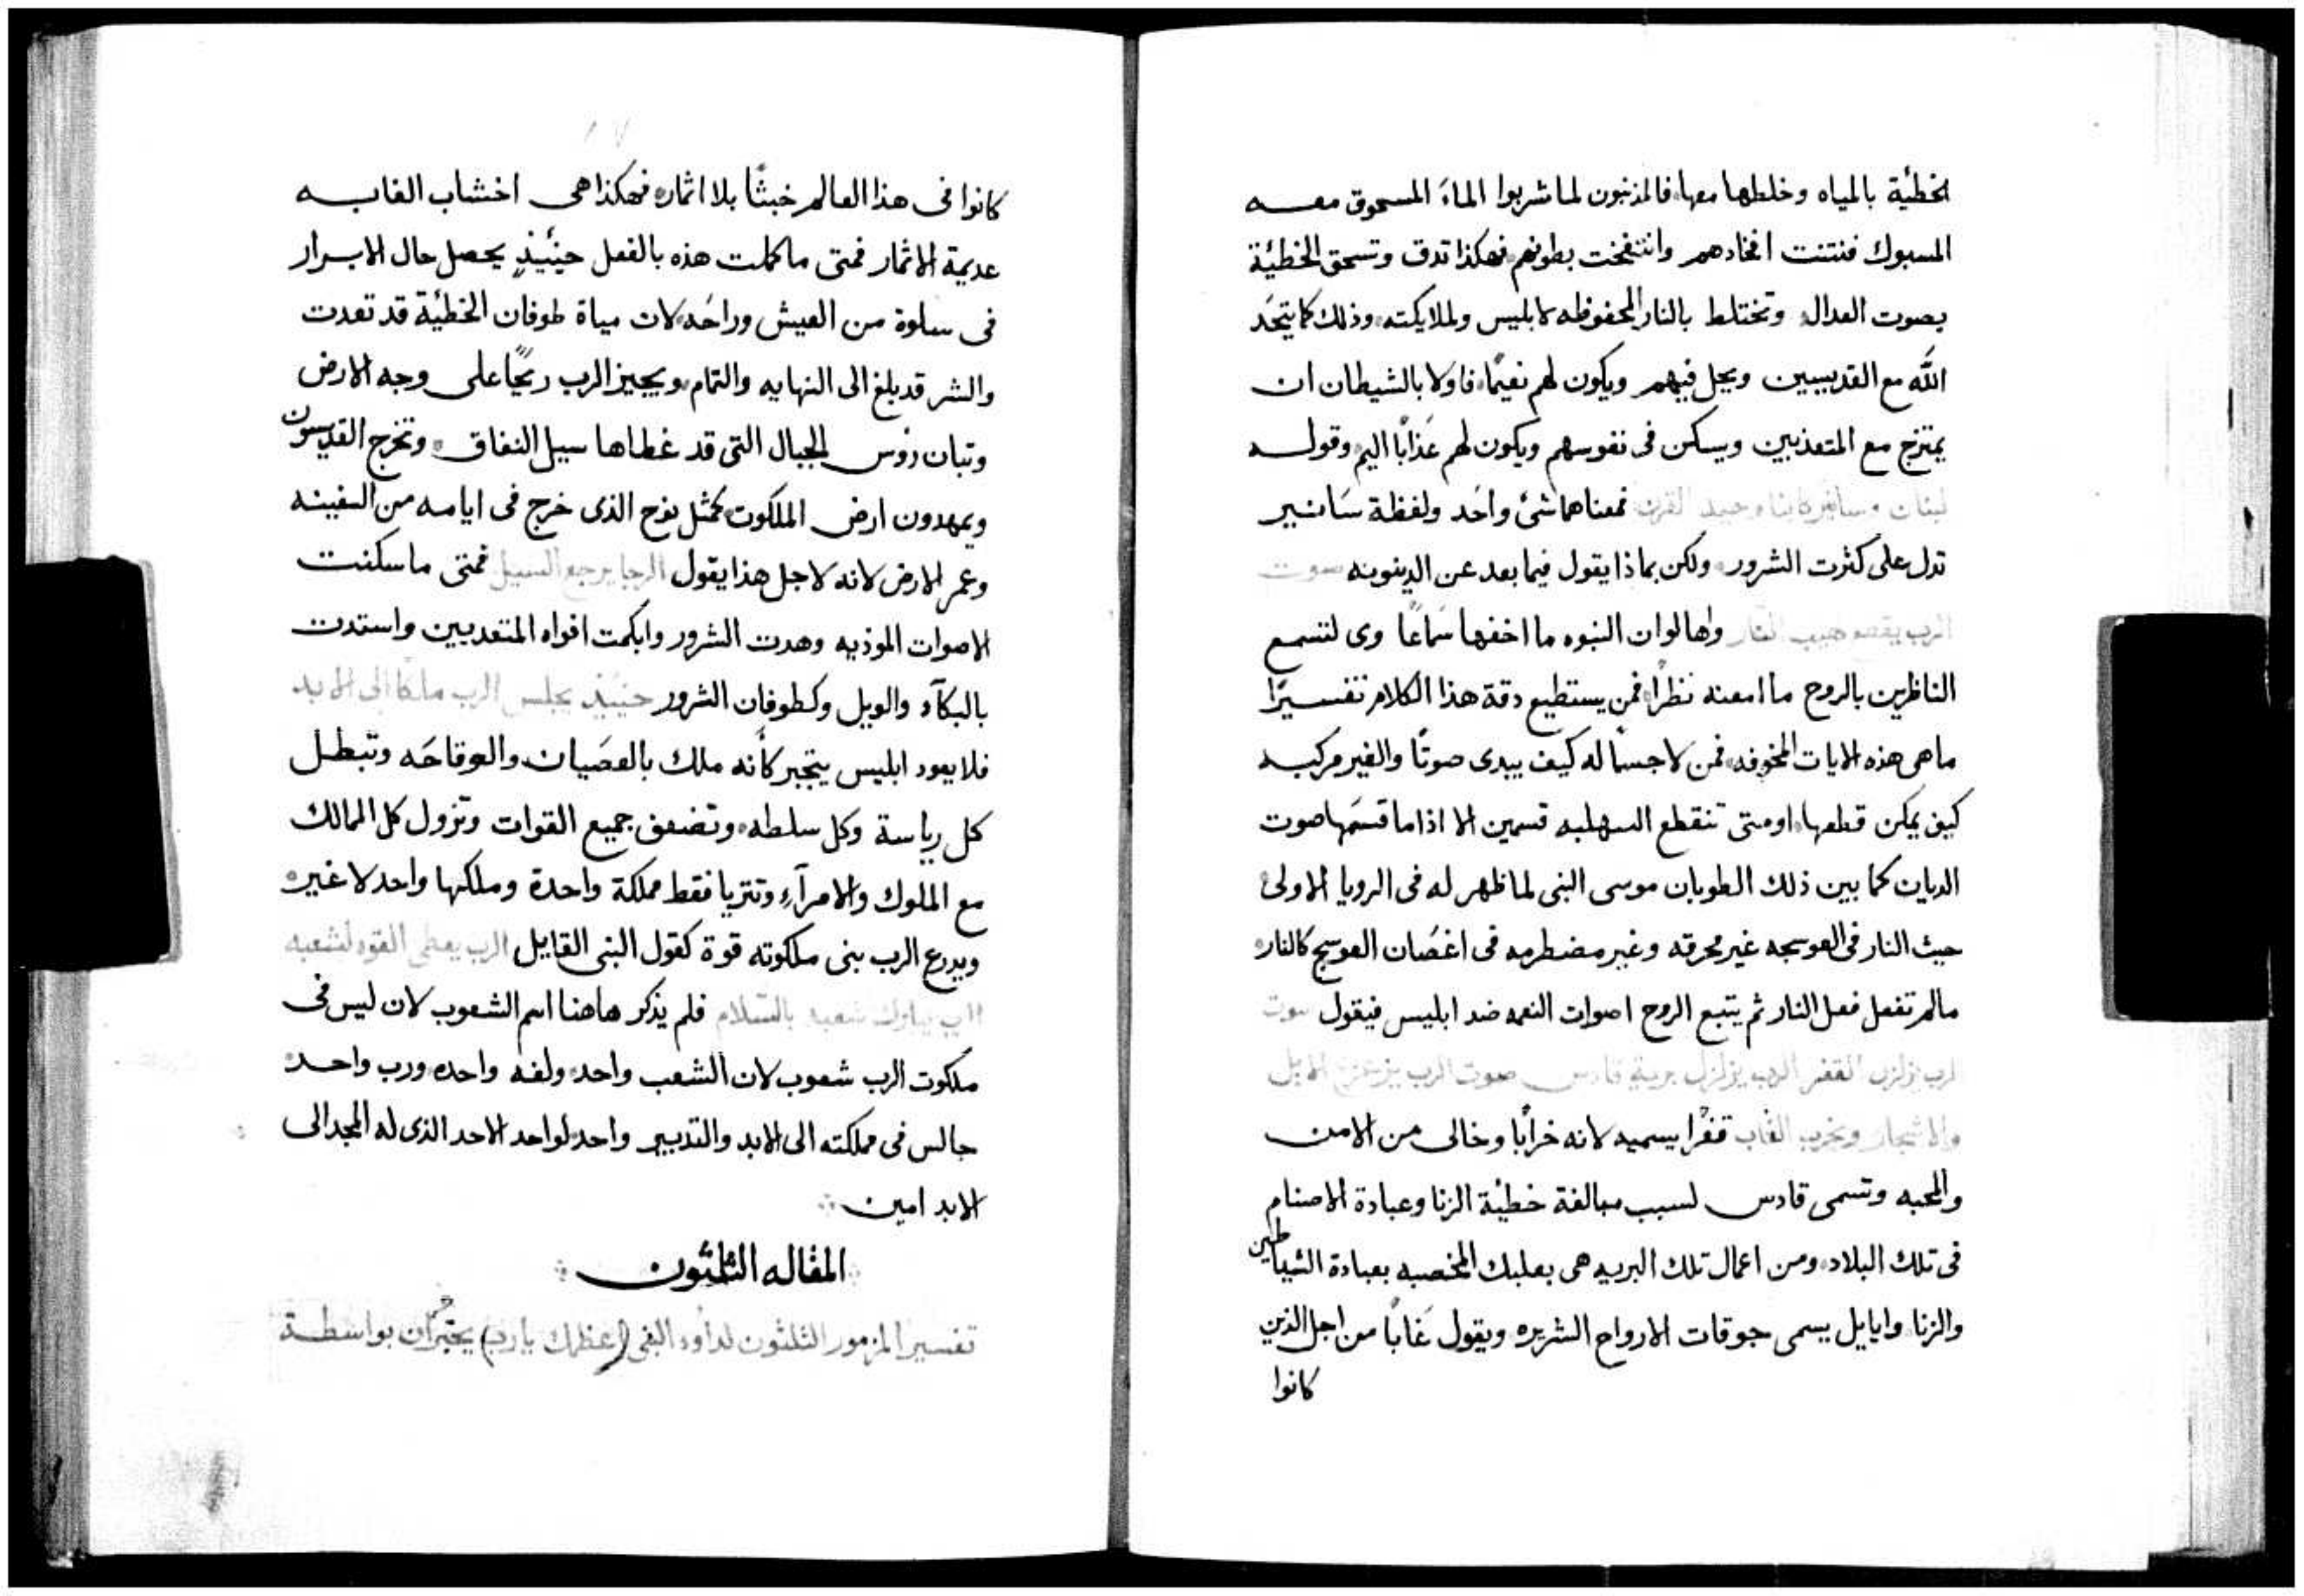 الخطئية بالمياه وخلطها معها فالمذنبون لما شربوا الماء المسحوق معه
المسبوك فنتنت افخادهم وانتفخت بطونهم فهكذا تدق وتسحق الخطئية
بصوت العدال وتختلط بالنار المحفوظه لابليس ولملايكته وذلك كما يتحد
الله مع القديسين ويحل فيهم ويكون لهم نعيمًا فاولا بالشيطان ان
يمتزج مع المتعذبين ويسكن فى نفوسهم ويكون لهم عذابًا اليم وقوله
لبنان وسانير كابناء وحيد القرن فمعناهما شئ واحد ولفظة سانير
تدل على كثرت الشرور ولكن بماذا يقول فيما بعد عن الدينونه صوت
الرب يقطع لهيب النار واها لوان النبوه ما اخفها سماعًا وى لتسمع
الناظرين بالروح ما امعنه نظرًا فمن يستطيع دقة هذا الكلام تفسيرًا
ماهى هذه الايات المخوفه فمن لا جسمًا له كيف يبدى صوتًا والغير مركبه
كيف يمكن قطعها اومتى تنقطع السهلبه قسمين الا اذا ما قسمها صوت
الديان كما بين ذلك الطوبان موسى النبى لما ظهر له فى الرويا الاولى
حيث النار فى العوسجه غير محرقه وغير مضطرمه فى اغصان العوسج كالنار
مالم تفعل فعل النار ثم يتبع الروح اصوات النعمه ضد ابليس فيقول صوت
الرب يزلزل القفر الرب يزلزل برية قادس صوت الرب يزعزع الايل
والاشجار ويخرب الغاب قفرًا يسميه لانه خرابًا وخالى من الامن
والمحبه وتسمى قادس لسبب مبالغة خطئية الزنا وعبادة الاصنام
فى تلك البلاد ومن اعمال تلك البريه هى بعلبك المخصبه بعبادة الشياطين
والزنا وايايل يسمى جوقات الارواح الشريره ويقول غابًا من اجل الذين
كانوا
كانوا فى هذا العالم خبثًا بلا اثمار فهكذا هى اخشاب الغابه
عديمة الاثمار فمتى ما كملت هذه بالفعل حينيذٍ يحصل حال الابرار
فى سلوة من العيش وراحه لان مياة طوفان الخطئية قد تعدت
والشر قد بلغ الى النهايه والتمام ويجيز الرب ريحًا على وجه الارض
وتبان رؤس الجبال التى قد غطاها سيل النفاق وتخرج القديسون
ويمهدون ارض الملكوت كمثل نوح الذى خرج فى ايامه من السفينه
وعمر الارض لانه لاجل هذا يقول الرجا يرجع السيل فمتى ما سكنت
الاصوات الموذيه وهدت الشرور وابكمت افواه المتعديين واستدت
بالبكآء والويل وكطوفان الشرور حينيذٍ يجلس الرب ملكًا الى الابد
فلا يعود ابليس يتجبر كأنه ملك بالعصيان والوقاحه وتبطل
كل رياسة وكل سلطه وتضعف جميع القوات وتزول كل الممالك
مع الملوك والامرآء وتتريا فقط مملكة واحدة وملكها واحد لا غير
ويدرع الرب بنى ملكوته قوة كقول النبى القايل الرب يعطى القوه لشعبه
الرب يبارك شعبه بالسلام فلم يذكر هاهنا اسم الشعوب لان ليس فى
ملكوت الرب شعوب لان الشعب واحد ولغه واحده ورب واحد
جالس فى مملكته الى الابد والتدبير واحد لواحد الاحد الذى له المجد الى
الابد امين
المقاله الثلثون
تفسير المزمور الثلثون لداود النبى (اعظمك يارب) يخبر ان بواسطة